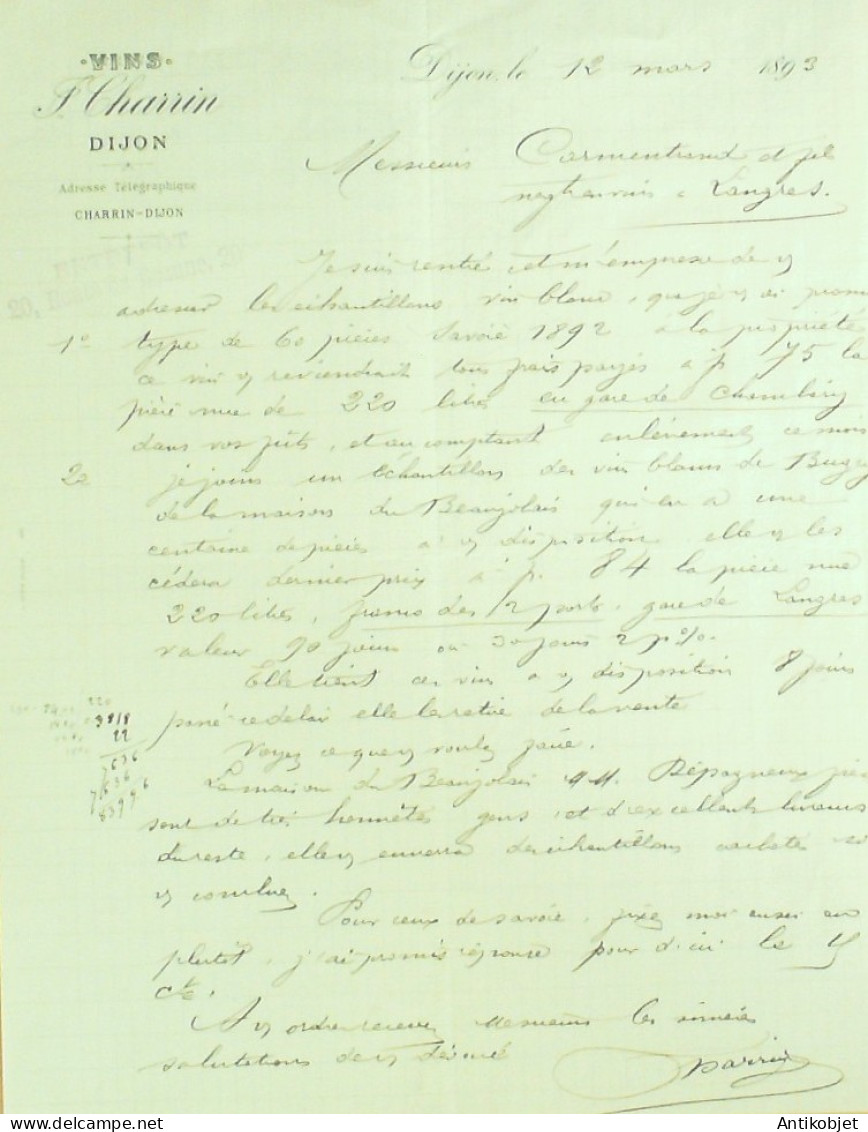 VINS
F. Charrin
DIJON
Adresse Télégraphique
CHARRIN-DIJON
Dijon, le 12 mars 1893
Messieurs
Langres.
Je suis rentré, et m'empresse de v
adresser les échantillons vin blanc, que je v ai promis
1° type de 60 pièces Savoie 1892 à la propriété
ce vin v reviendrait tous frais payés à f 75 la
pièce nue de 220 litres en gare de Chambéry
dans vos fûts, et au comptant enlèvement ce mois
2° je joins un échantillon des vins blancs de Bugey
de la maison du Beaujolais qui en a une
centaine de pièces à v disposition, elle v les
cédera dernier prix à f. 84 la pièce nue
220 litres, franco des 2 ports, gare de Langres
valeur 90 jours ou 30 jours 2 p%.
Elle tient ces vins à v disposition 8 jours
passé ce délai elle les retire de la vente
220
3818
22
7636
7636
83996
Voyez ce que v voulez faire.
La maison du Beaujolais MM. Dépagneux
sont de très honnêtes gens, et d'excellents livreurs
du reste, elle v enverra des échantillons cachetés si
v concluez.
Pour ceux de Savoie, fixez moi aussi au
plutôt, j'ai promis réponse pour d'ici le 15
ct.
A v ordres recevez Messieurs les sincères
salutations de v dévoué
Charrin
Antikobjet